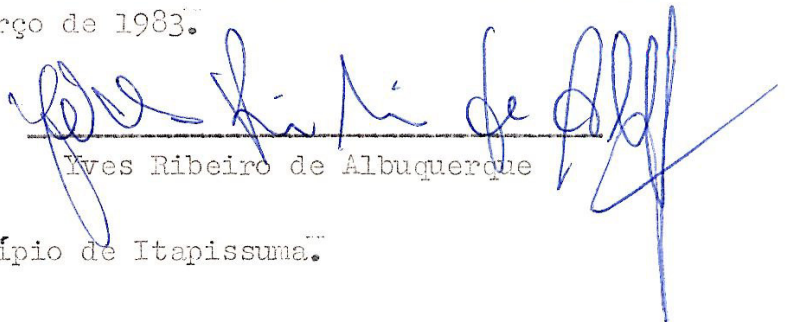 rço de 1983.
Yves Ribeiro de Albuquerque
ípio de Itapissuma.